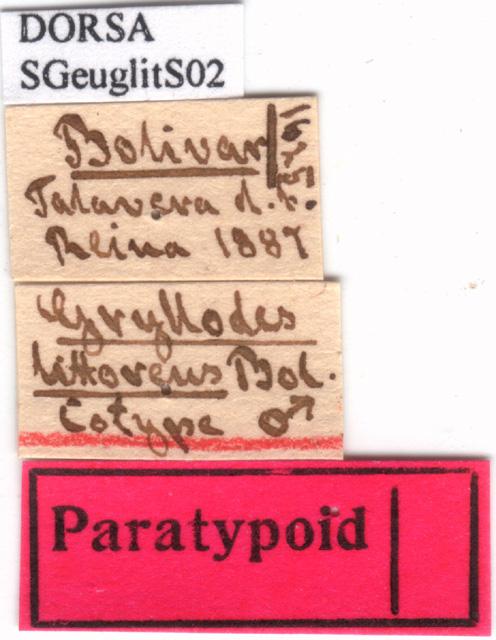 DORSA
SGeuglitS02
Bolivar
Talavera d. l.
Reina 1887
Gryllodes
littoreus Bol.
Cotype ♂
Paratypoid